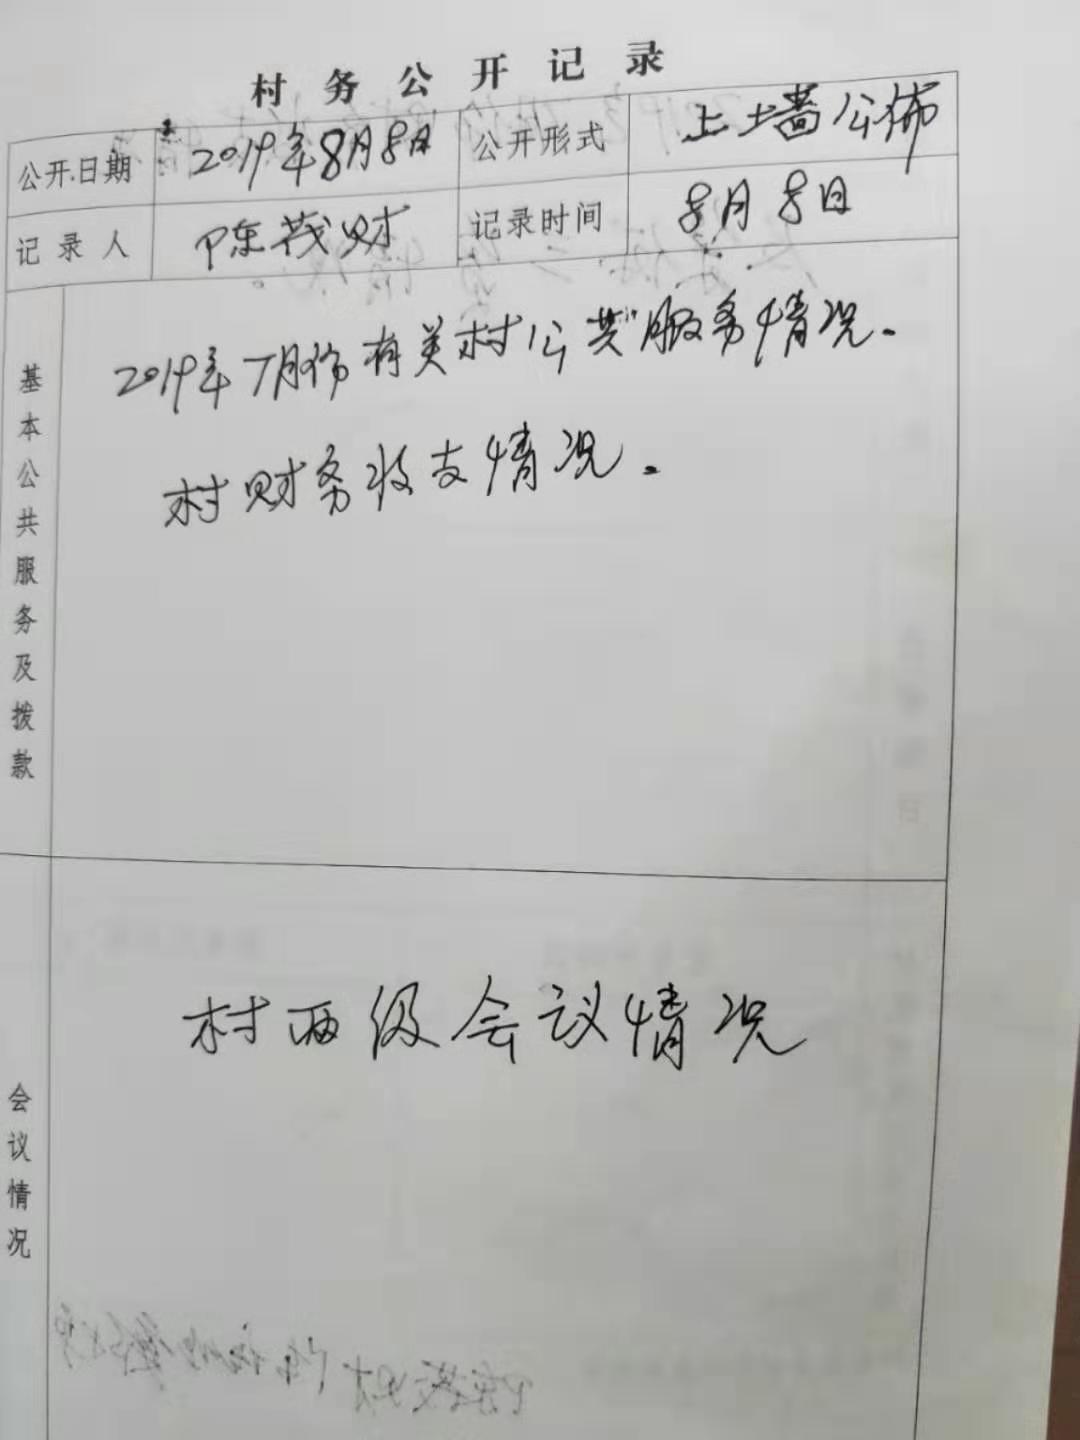 村务公开记录
公开日期 2019年8月8日 公开形式 上墙公佈
记录人 陈茂财 记录时间 8月8日
基本公共服务及拨款
2019年7月份有关村公共服务情况.
村财务收支情况.
会议情况
村两级会议情况